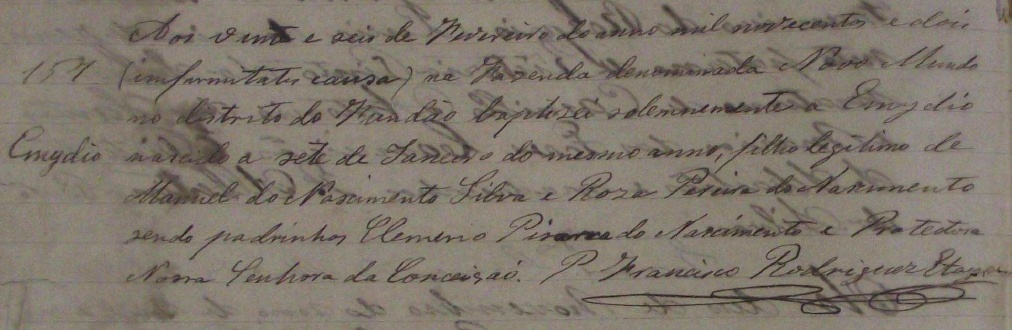 Aos vinte e seis de Fevereiro do anno mil novecentos e dois
(infirmitatis causa) na Fazenda denominada Novo Mundo
no distrito do Fundão baptisei solemnemente a Emydio
Emydio nascido a sete de Janeiro do mesmo anno, filho legitimo de
Manuel do Nascimento Silva e Roza Pereira do Nascimento
sendo padrinhos do Nascimento e Protectora
Nossa Senhora da Conceição. P Francisco Rodriguez